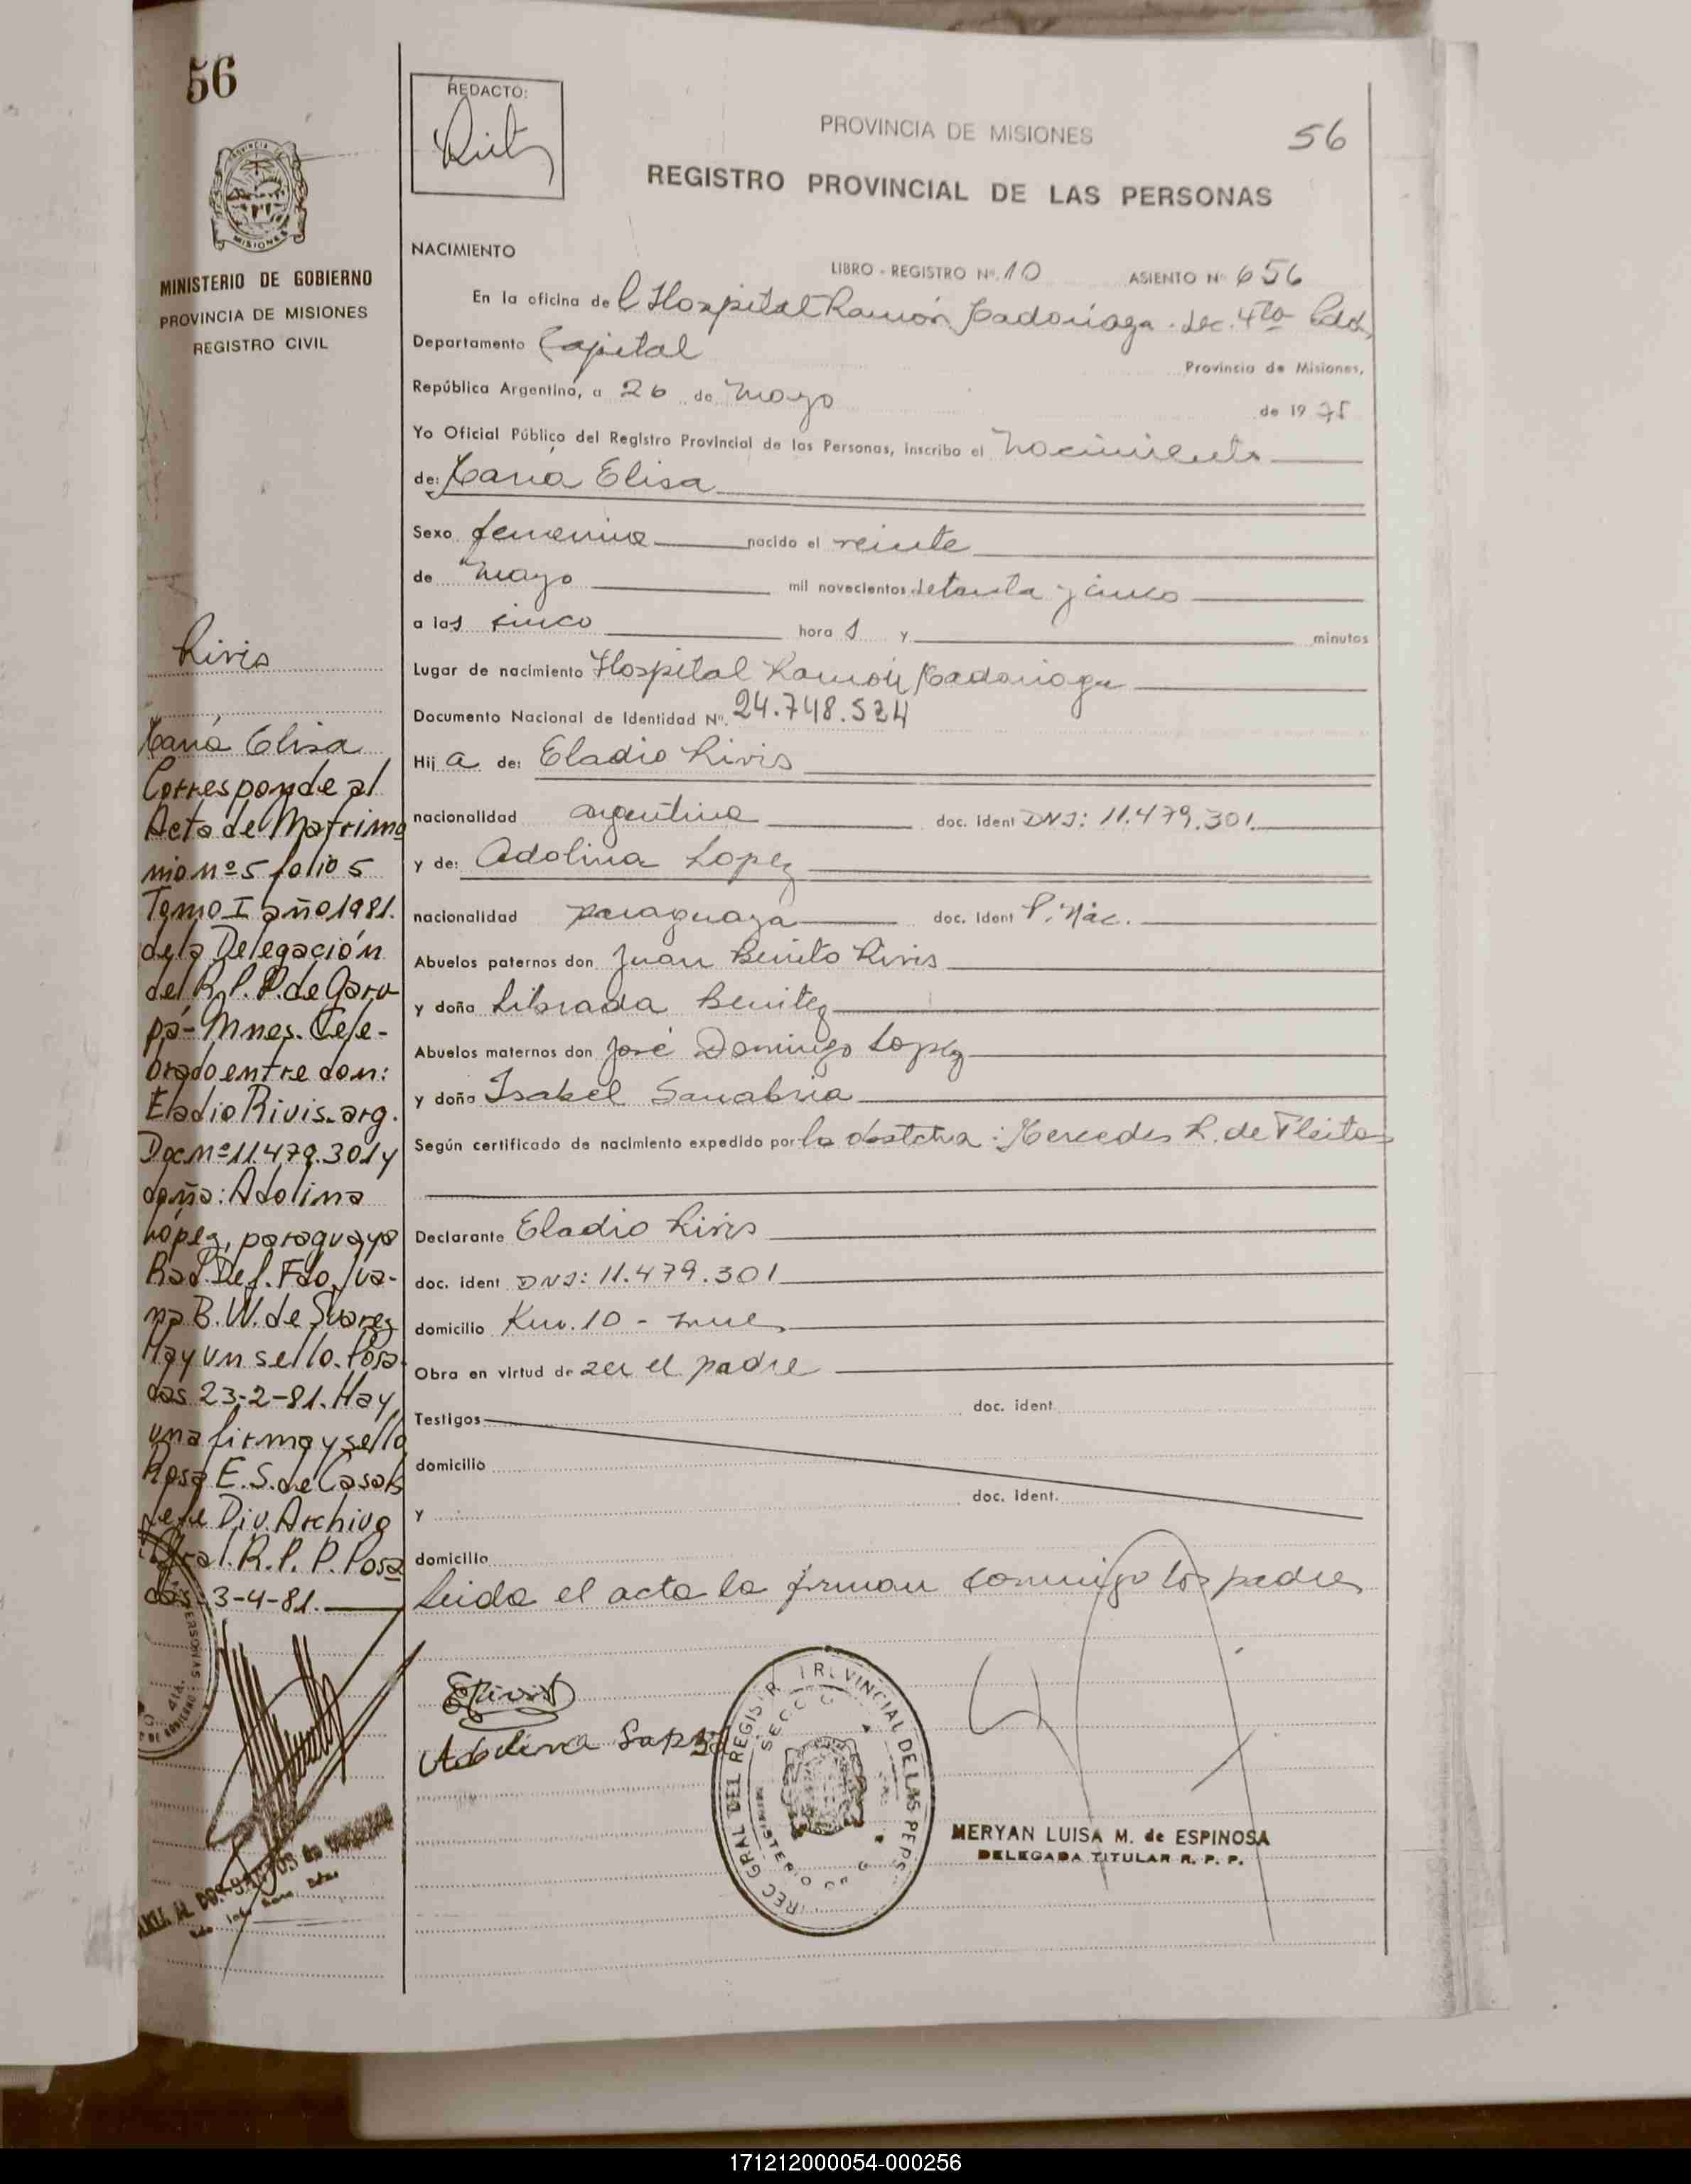 56
REDACTO:
PROVINCIA DE MISIONES
56
REGISTRO PROVINCIAL DE LAS PERSONAS
MISIONES
MINISTERIO DE GOBIERNO
PROVINCIA DE MISIONES
REGISTRO CIVIL
NACIMIENTO
LIBRO - REGISTRO Nº. 10 ASIENTO Nº 656
En la oficina de l Hospital Ramón Madariaga. Sec. 4ta
Departamento Capital
Provincia de Misiones,
República Argentina, a 26 de mayo de 1975
Yo Oficial Público del Registro Provincial de las Personas, inscribo el nacimiento
de: María Elisa
Sexo femenino nacido el veinte
de mayo mil novecientos setenta y cinco
a las cinco hora s y minutos
Lugar de nacimiento Hospital Ramón Madariaga
Documento Nacional de Identidad Nº. 24.748.524
Hij a de: Eladio Rivis
nacionalidad argentina doc. ident DNI: 11.479.301
y de: Adolina Lopez
nacionalidad paraguaya doc. ident P. Nac.
Abuelos paternos don Juan Benito Rivis
y doña Librada Benitez
Abuelos maternos don José Domingo Lopez
y doña Isabel Sanabria
Según certificado de nacimiento expedido por la obstetra: Mercedes R. de Fleitas
Declarante Eladio Rivis
doc. ident DNI: 11.479.301
domicilio Km. 10 -
Obra en virtud de ser el padre
Testigos doc. ident
domicilio
y doc. ident.
domicilio
Leida el acta la firman conmigo los padres
Rivis
María Elisa
Corresponde al
Acta de Matrimo
nio nº 5 folio 5
Tomo I año 1981.
de la Delegación
del R.P.P. de Garu
pá - Mnes. Cele-
brado entre don:
Eladio Rivis. arg.
Doc Nº 11.479.301 y
doña: Adolina
López, paraguaya
Rad. Def. Fdo. Jua-
na B. W. de Suarez
Hay un sello. Posa-
das 23-2-81. Hay
una firma y sello
Rosa E. S. de Casals
Jefe Div. Archivo
Gral. R. P. P. Posa
das 3-4-81.
E Rivis
Adolina Lopez
MERYAN LUISA M. de ESPINOSA
DELEGADA TITULAR R. P. P.
171212000054-000256